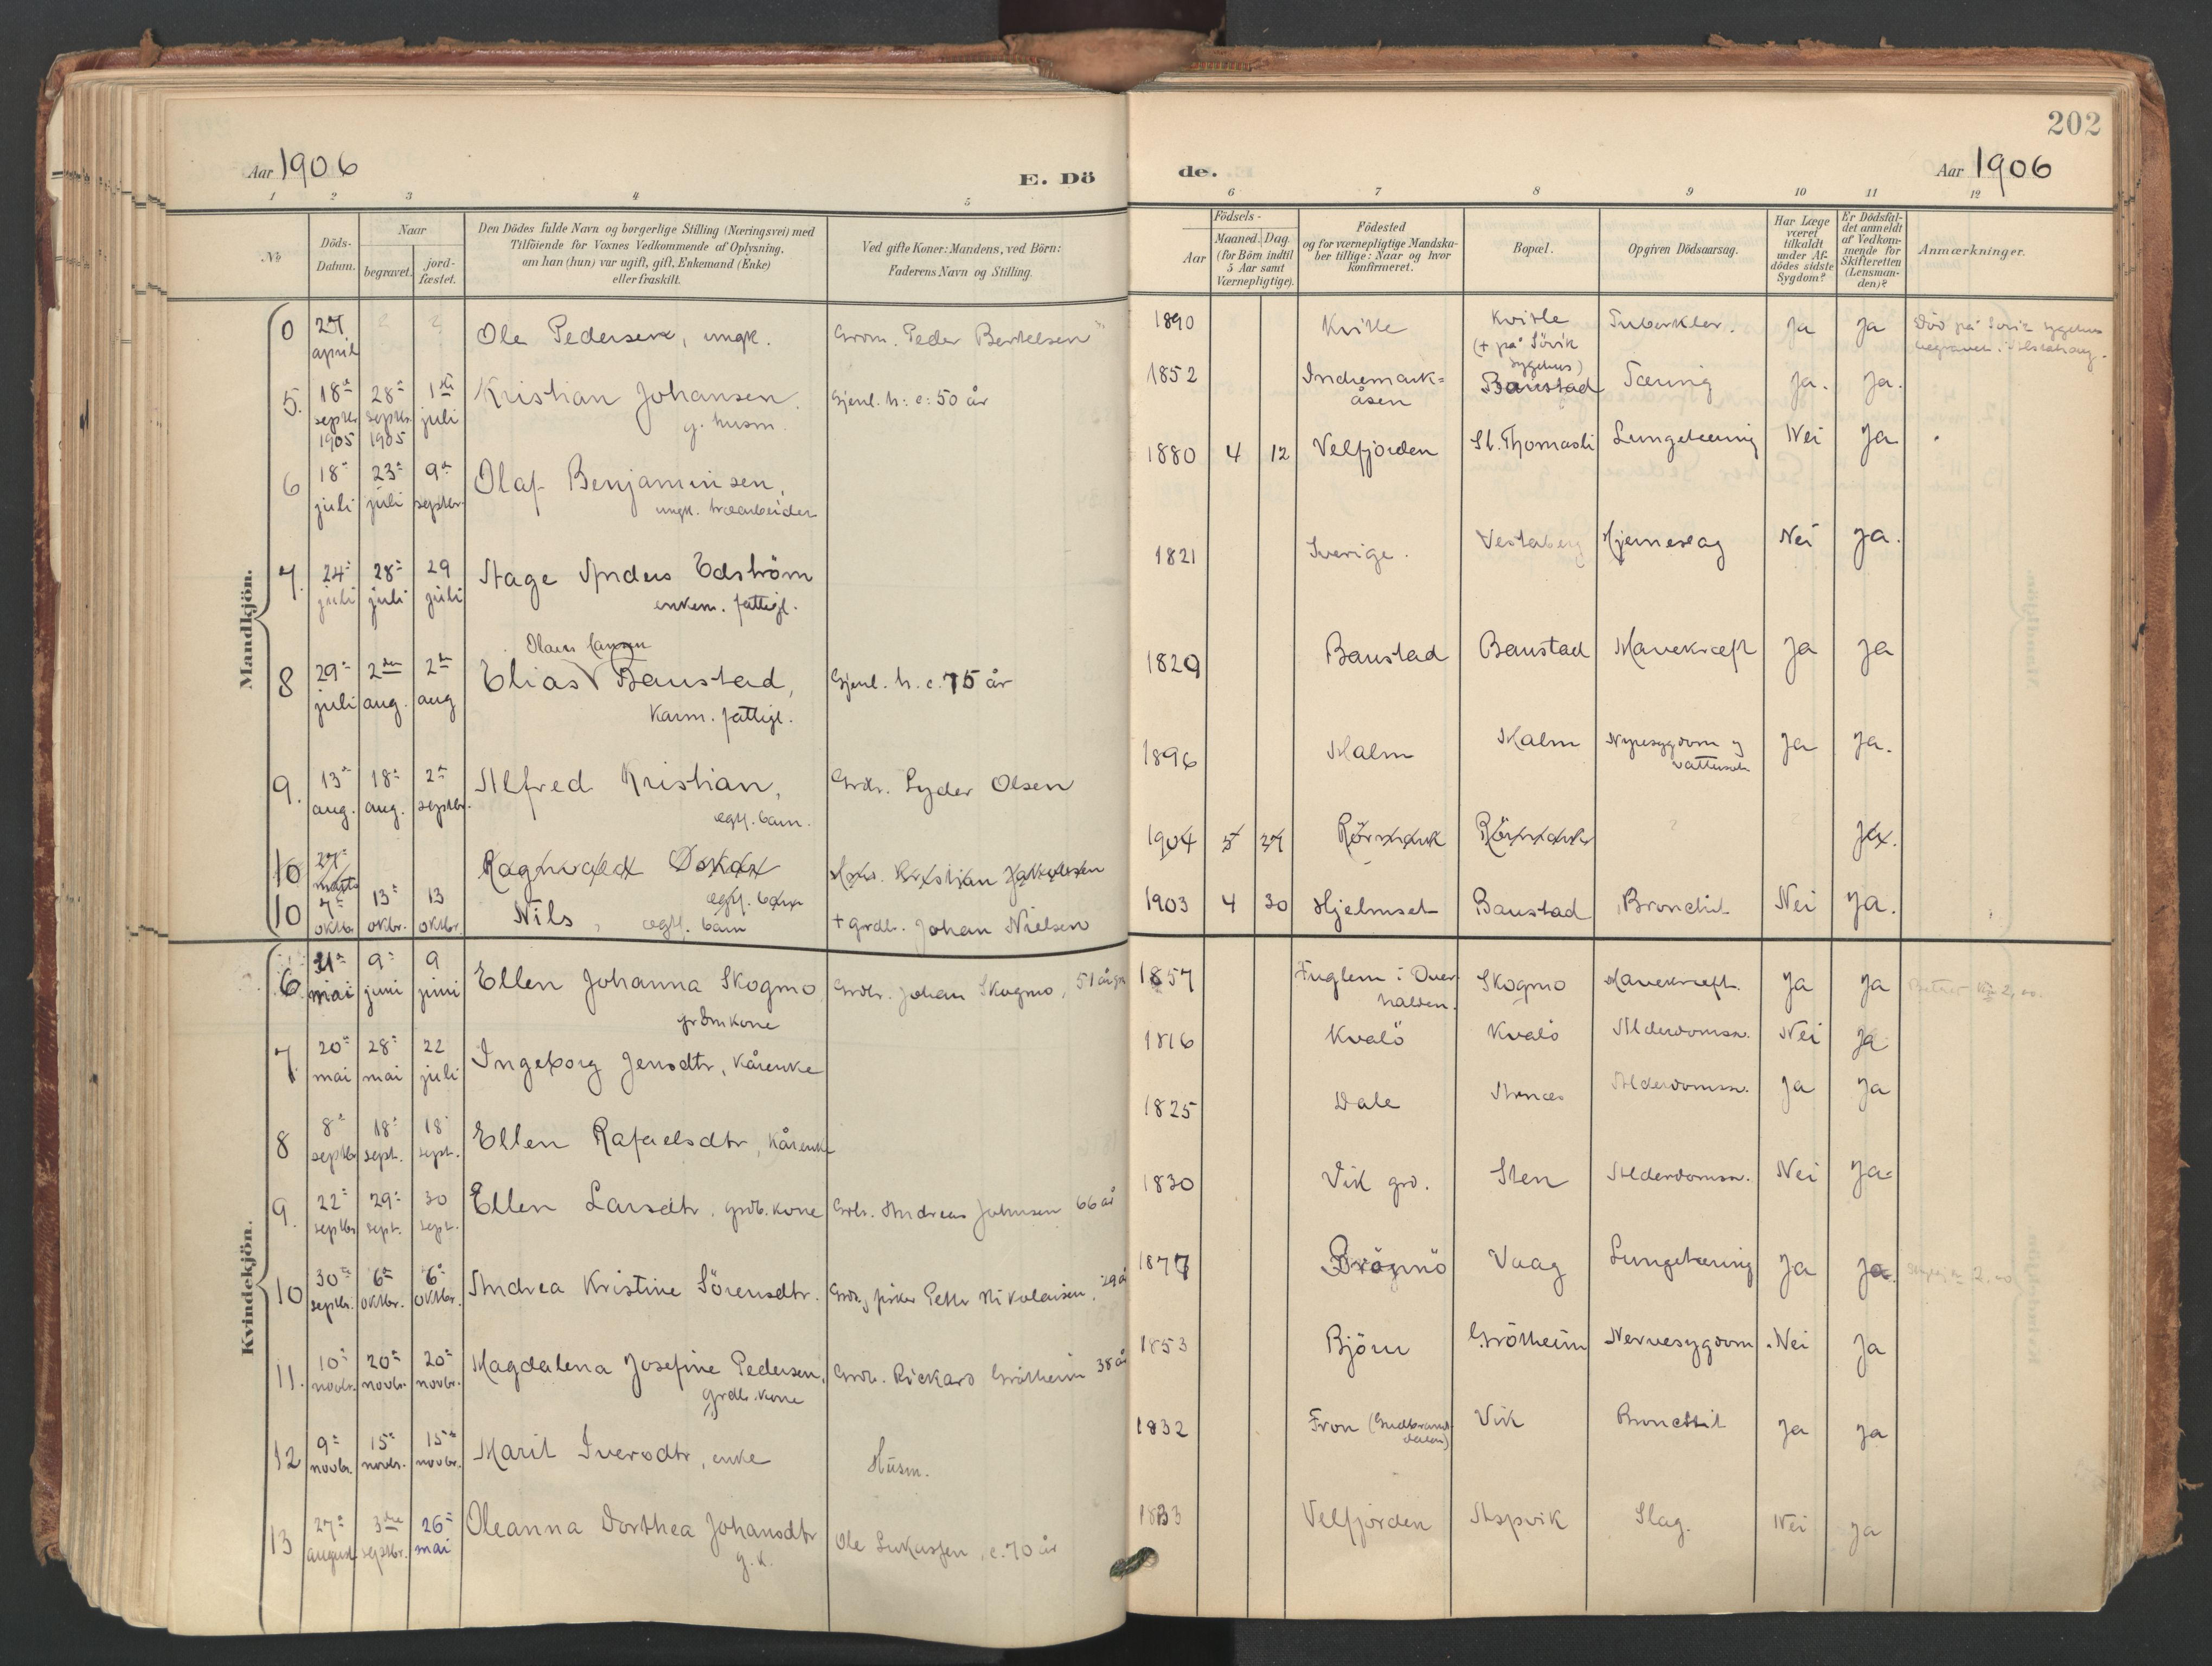 202
Aar 1906
E. Dö
de.
Aar 1906
1 2 3 4 5
6 7 8 9 10 11 12
No
Döds-Datum.
Naar
begravet.
jord-fæstet.
Den Dödes fulde Navn og borgerlige Stilling (Næringsvei) med
Tilföiende for Voxnes Vedkommende af Oplysning.
om han (hun) var ugift, gift, Enkemand (Enke)
eller fraskilt.
Ved gifte Koner: Mandens, ved Börn:
Faderens Navn og Stilling.
Födsels-
Aar
Maaned. Dag.
(for Börn indtil
5 Aar samt
Værnepligtige).
Födested
og for værnepligtige Mandska-
ber tillige: Naar og hvor
konfirmeret.
Bopæl.
Opgiven Dödsaarsag.
Har Læge
været
tilkaldt
under Af-
dödes sidste
Sygdom?
Er Dödsfal-
det anmeldt
af Vedkom-
mende for
Skifteretten
(Lensman-
den)?
Anmærkninger.
Mandkjön.
0 27 april ? ? Ole Pedersen, ungk. Peder Bertelsen 1890 Kvitle Kvitle (+ på Sövik sygehus) Tuberkler. Ja Ja Död på Sövik sygehus begravet i Alstahaug.
5. 18de septbr 1905 28de septbr. 1905 1ste juli Kristian Johansen, g. husm. Gjenl. h: c: 50 år 1852 Indremark=åsen Baustad Tæring Ja. Ja.
6 18de juli 23de juli 9de septbr. Olaf Benjaminsen, ungk. træarbeider 1880 4 12 Velfjorden St. Thomasli Lungetæring Nei Ja.
7. 24de juli 28de juli 29 juli Aage Anders Edström enkem. fattigl. 1821 Sverige. Vestaberg Hjerneslag Nei Ja.
8 29de juli 2den aug. 2den aug Elias Olaus Hansen Baustad, Kaarm. fattigl. Gjenl. h. c. 75 år 1829 Baustad Baustad Mavekræft Ja Ja
9. 13de aug. 18de aug. 2den septbr. Alfred Kristian, ægtf. barn. Grdbr. Peder Olsen 1896 Malm Malm Nyresygdom og vattersot Ja Ja.
10 27de marts Ragnvald Oskar ægtf. barn Kristian Jakobsen 1904 5 27 Rörmark Rörmark ? ? Ja.
10 7de oktbr 13de oktbr. 13 oktbr. Nils, ægtf. barn + grdbr. Johan Nielsen 1903 4 30 Hjelmset Baustad Bronchit Nei Ja.
Kvindekjön.
6 21de mai 9de juni 9 juni Ellen Johanna Skogmo, grdmkone Grdbr. Johan Skogmo, 51 år gm 1857 Fuglem i Over halden. Skogmo Mavekræft. Ja Ja Betalt Kr 2,00.
7. 20de mai 28de mai 22 juli Ingeborg Jensdtr, kårenke 1816 Kvalö Kvalö Alderdomssv. Nei Ja
8 8de septbr 18de sept. 18 sept. Ellen Rafaelsdtr, kårenke 1825 Dale Arnæs Alderdomssv. Ja Ja
9. 22de septbr 29de sept. 30 sept. Ellen Larsdtr, grdb. kone Grdbr. Andreas Johnsen 66 år 1830 Vik grd. Sten Alderdomssv. Nei Ja
10 30te septbr. 6te oktbr. 6te oktbr. Andrea Kristine Sörensdtr. Grdb. og fisker Petter Nikolaisen, 29 år 1877 Brönnö Vaag Lungetæring Ja Ja. 2.00
11. 10de novbr. 20de novbr. 20de novbr. Magdalena Josefine Pedersen, grdb. kone Grdbr. Rickard Grötheim 38 år 1853 Björn Grötheim Nervesygdom Nei Ja
12 9de novbr. 15de novbr. 15de novbr. Marit Iversdtr, enke Husm. 1832 Fron (Gudbrandsdalen) Vik Bronchit Ja Ja
13 27de august 3dje septbr. 26de mai Oleanna Dorthea Johansdtr g. k. Ole Lukassen, c. 70 år 1833 Velfjorden Aspvik Slag. Nei Ja